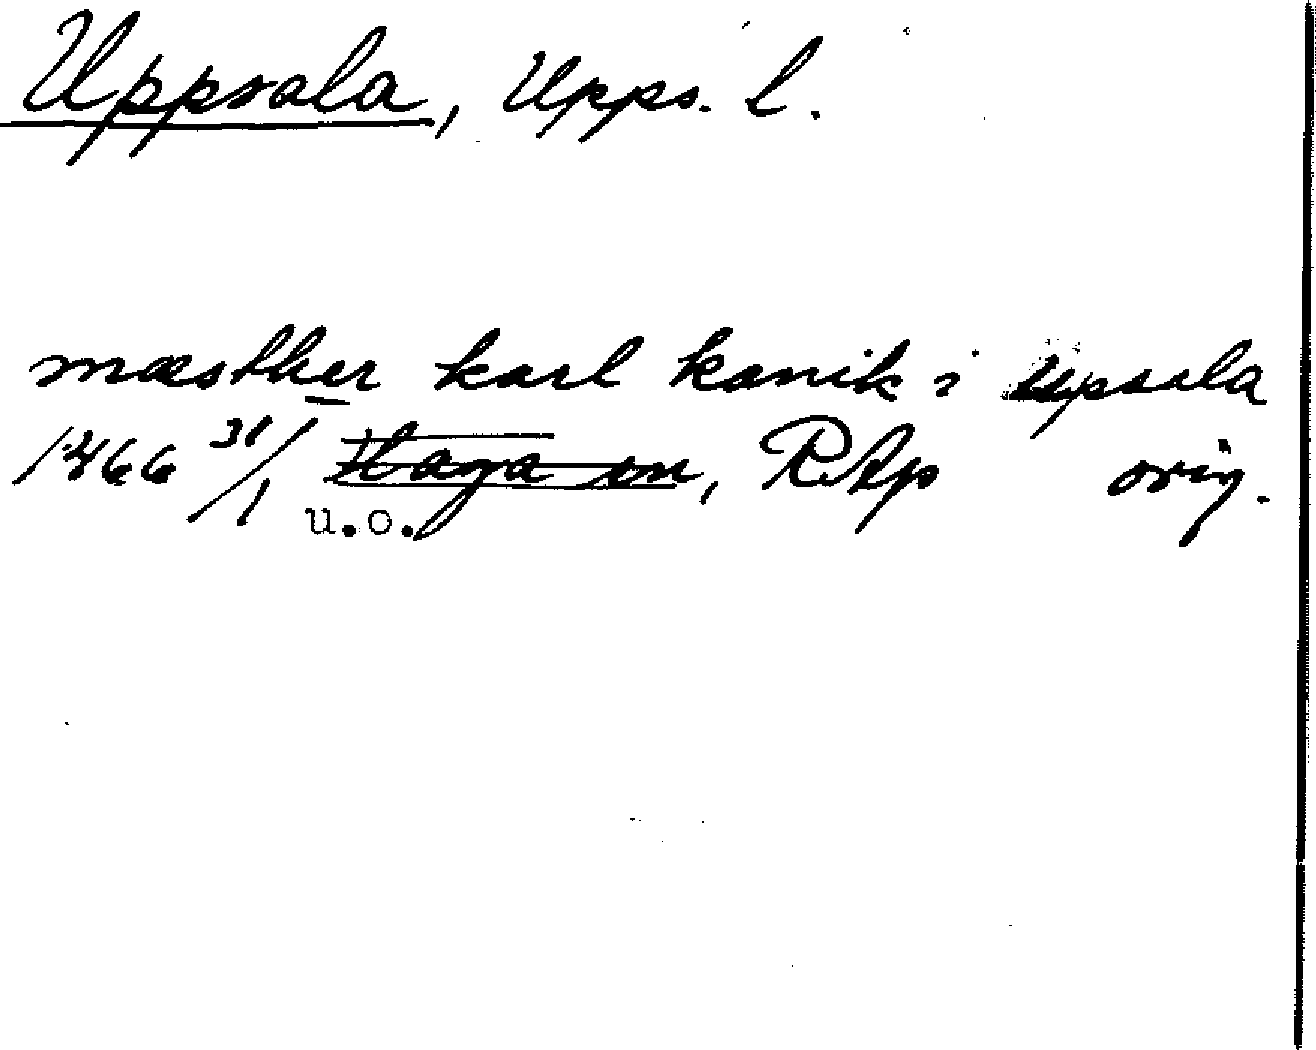 Uppsala, Upps. l.
mæsther karl kanik i upsala
1466 31/1 Haga on, RAp orig.
u.o.